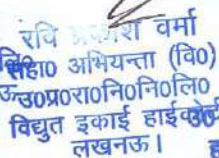 रवि प्रकाश वर्मा
सहा0 अभियन्ता (वि0)
उ0प्र0रा0नि0नि0लि0
विद्युत इकाई हाईकोर्ट
लखनऊ।